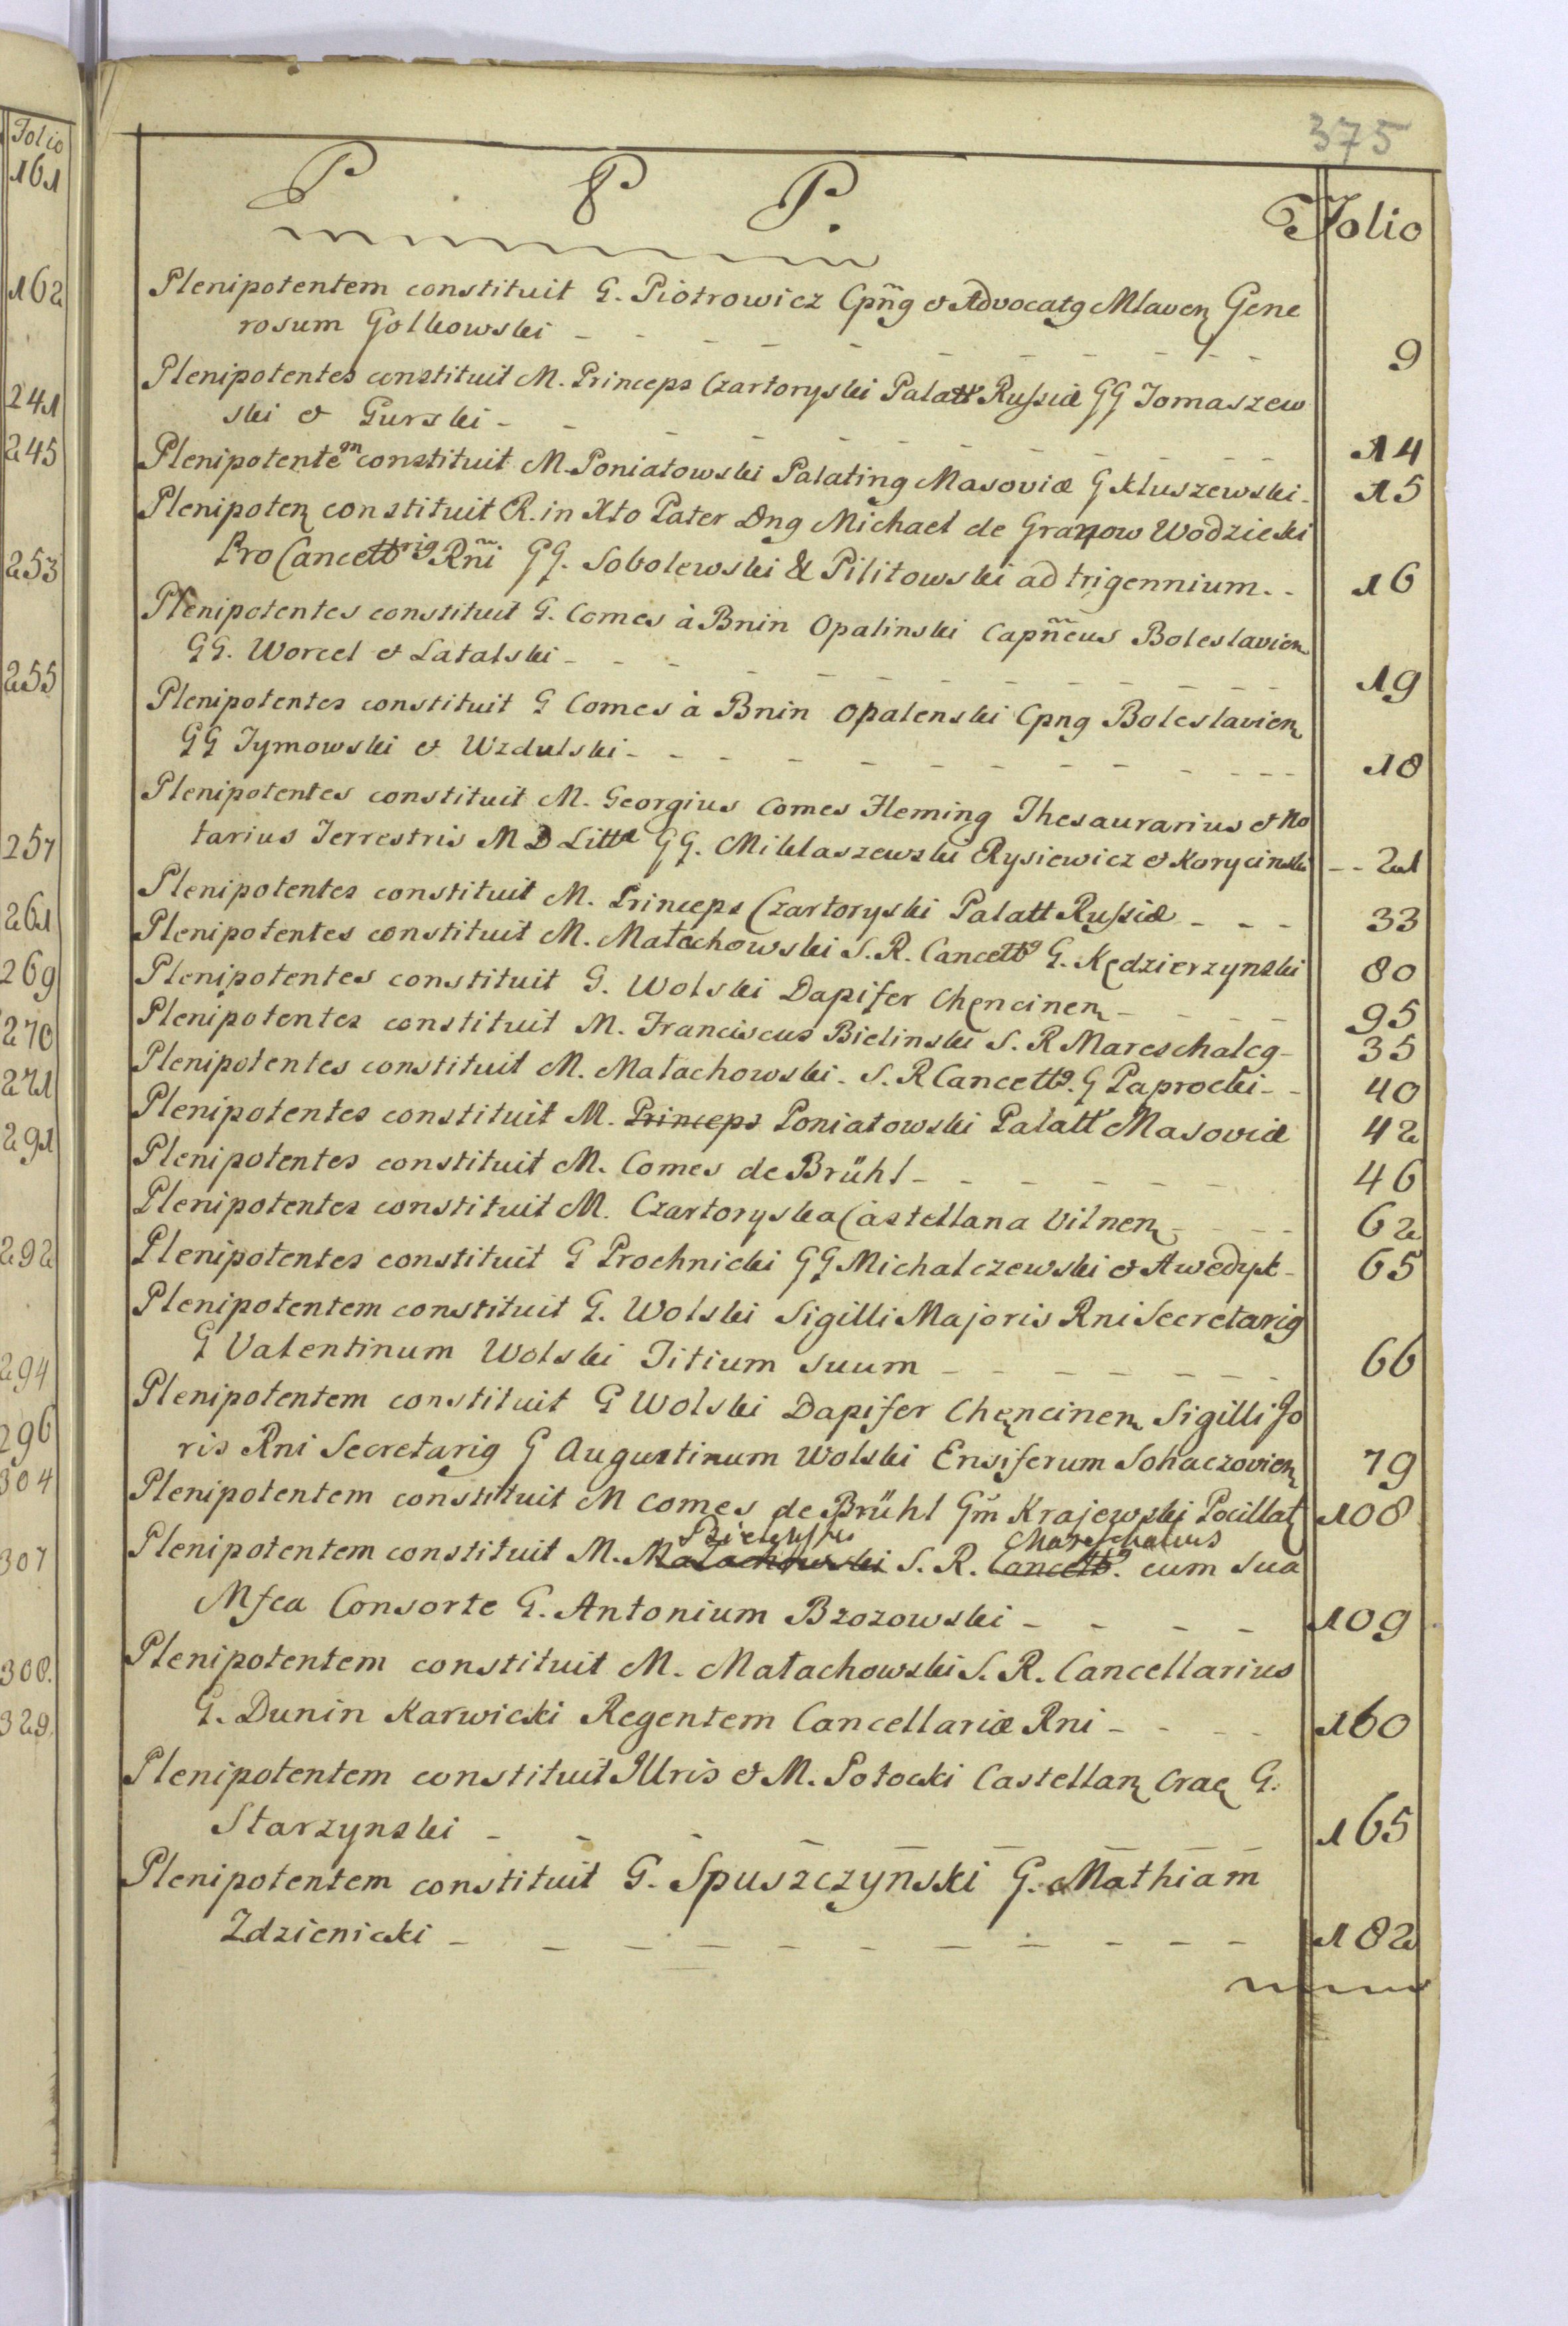 Folio
161
162
241
245
253
255
257
261
269
270
271
291
292
294
296
304
307
308.
329.
375
P P P.
Folio
Plenipotentem constituit G. Piotrowicz Cpñg & Advocatg Mlaveņ Gene
rosum Golkowski - - - - - - - - - 9
Plenipotentes constituit M. Princeps Czartoryski Palatt Russiæ GG Tomaszew
ski & Gurski - - - - - - - - - 14
Plenipotentem constituit M. Poniatowski Palating Masoviæ G Kluszewski - 15
Plenipoteņ constituit R. in Xto Pater Dng Michael de Granow Wodzicki
Pro Cancellrig Rñi GG. Sobolewski & Pilitowski ad trigennium. - 16
Plenipotentes constituit G. Comes à Bnin Opalinski Capñeus Boleslavieņ
GG. Worcel & Latalski - - - - - - - - - 19
Plenipotentes constituit G Comes à Bnin Opalenski Cpng Boleslavieņ
GG Tymowski & Uzdulski - - - - - - - - - 18
Plenipotentes constituit M. Georgius Comes Fleming Thesaurarius & No
tarius Terrestris M D Litt GG. Miklaszewski Rysiewicz & Korycinski - - 21
Plenipotentes constituit M. Princeps Czartoryski Palatt Russiæ - - - 33
Plenipotentes constituit M. Małachowski S. R. Cancell9 G. Kędzierzynski 80
Plenipotentes constituit G. Wolski Dapifer Chęncineņ - - - - 95
Plenipotentes constituit M. Franciscus Bielinski S. R Mareschalcg - 35
Plenipotentes constituit M. Małachowski. S. R Cancell9. G Paprocki - - 40
Plenipotentes constituit M. Princeps Poniatowski Palatt Masoviæ 42
Plenipotentes constituit M. Comes de Brühl - - - - - - 46
Plenipotentes constituit M. Czartoryska Castellana Vilneņ - - - - 62
Plenipotentes constituit G Prochnicki GG Michalczewski & Awedyk - 65
Plenipotentem constituit G. Wolski Sigilli Majoris Rni Secretarig
G Valentinum Wolski Titium suum - - - - - - - 66
Plenipotentem constituit G Wolski Dapifer Chęncineņ Sigilli Jo
ris Rni Secretarig G Augustinum Wolski Ensiferum Sohaczovieņ 79
Plenipotentem constituit M Comes de Brühl Gm̃ Krajewski Pocillat 108
Bielinski Mareschalcus
Plenipotentem constituit M. Małachowski S. R. Cancell9. cum sua
Mfca Consorte G. Antonium Bzozowski - - - - 109
Plenipotentem constituit M. Małachowski S. R. Cancellarius
G. Dunin Karwicki Regentem Cancellariæ Rni - - - - 160
Plenipotentem constituit Illris & M. Potocki Castellaņ Crac G.
Starzynski - - - - - - - - 165
Plenipotentem constituit G. Spuszczynski G. Mathiam
Zdzienicki - - - - - - - - - - - 182